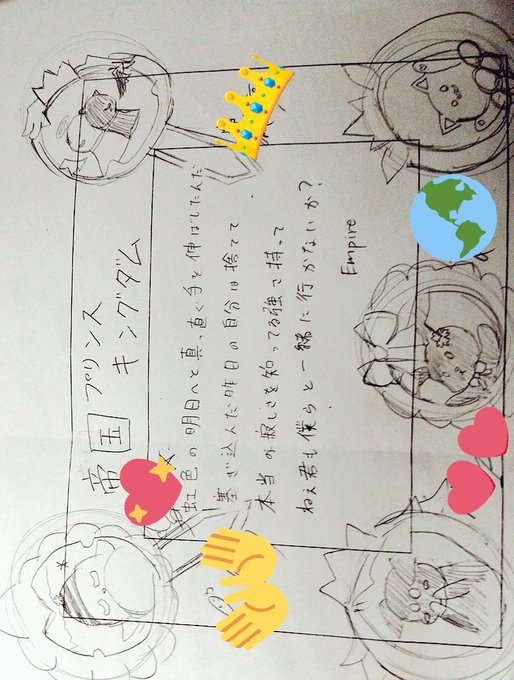 帝国
プリンス
キングダム
虹色の明日へと真っ直ぐ手を伸ばしたんだ
塞ぎ込んだ昨日の自分は捨てて
本当の寂しさを知ってる強さ持って
ねぇ君も僕らと一緒に行かないか?
Empire